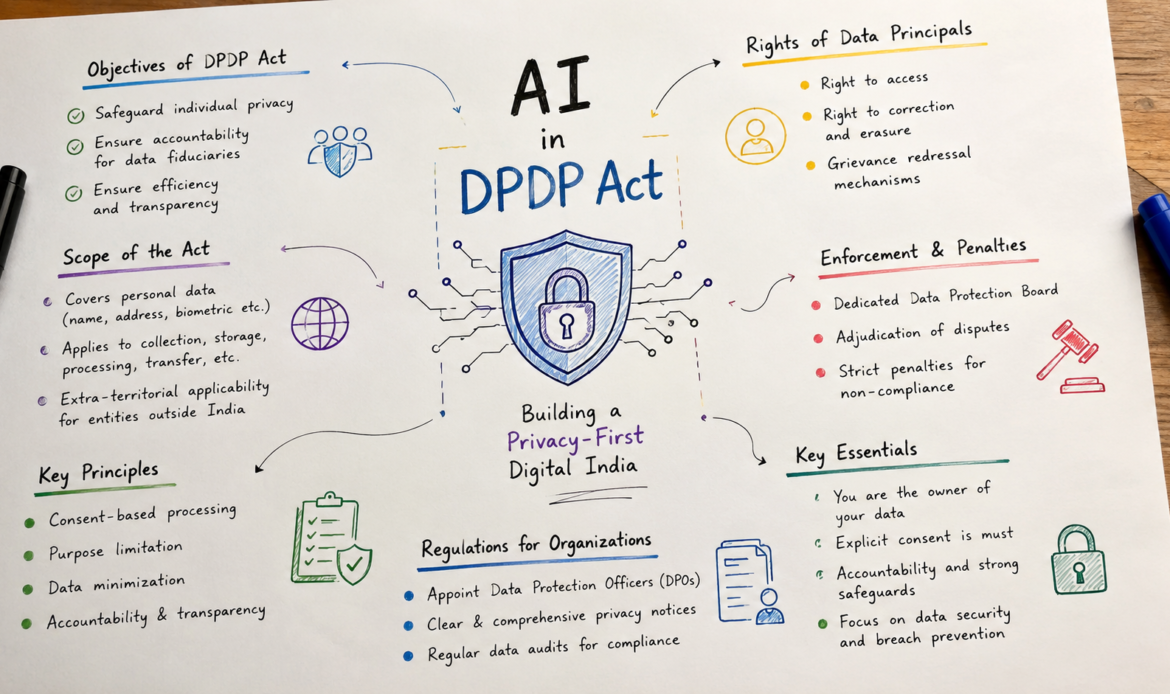 AI
in
DPDP Act
Building a
Privacy-First
Digital India
Objectives of DPDP Act
Safeguard individual privacy
Ensure accountability
for data fiduciaries
Ensure efficiency
and transparency
Scope of the Act
Covers personal data
(name, address, biometric etc.)
Applies to collection, storage,
processing, transfer, etc.
Extra-territorial applicability
for entities outside India
Key Principles
Consent-based processing
Purpose limitation
Data minimization
Accountability & transparency
Regulations for Organizations
Appoint Data Protection Officers (DPOs)
Clear & comprehensive privacy notices
Regular data audits for compliance
Rights of Data Principals
Right to access
Right to correction
and erasure
Grievance redressal
mechanisms
Enforcement & Penalties
Dedicated Data Protection Board
Adjudication of disputes
Strict penalties for
non-compliance
Key Essentials
You are the owner of
your data
Explicit consent is must
Accountability and strong
safeguards
Focus on data security
and breach prevention